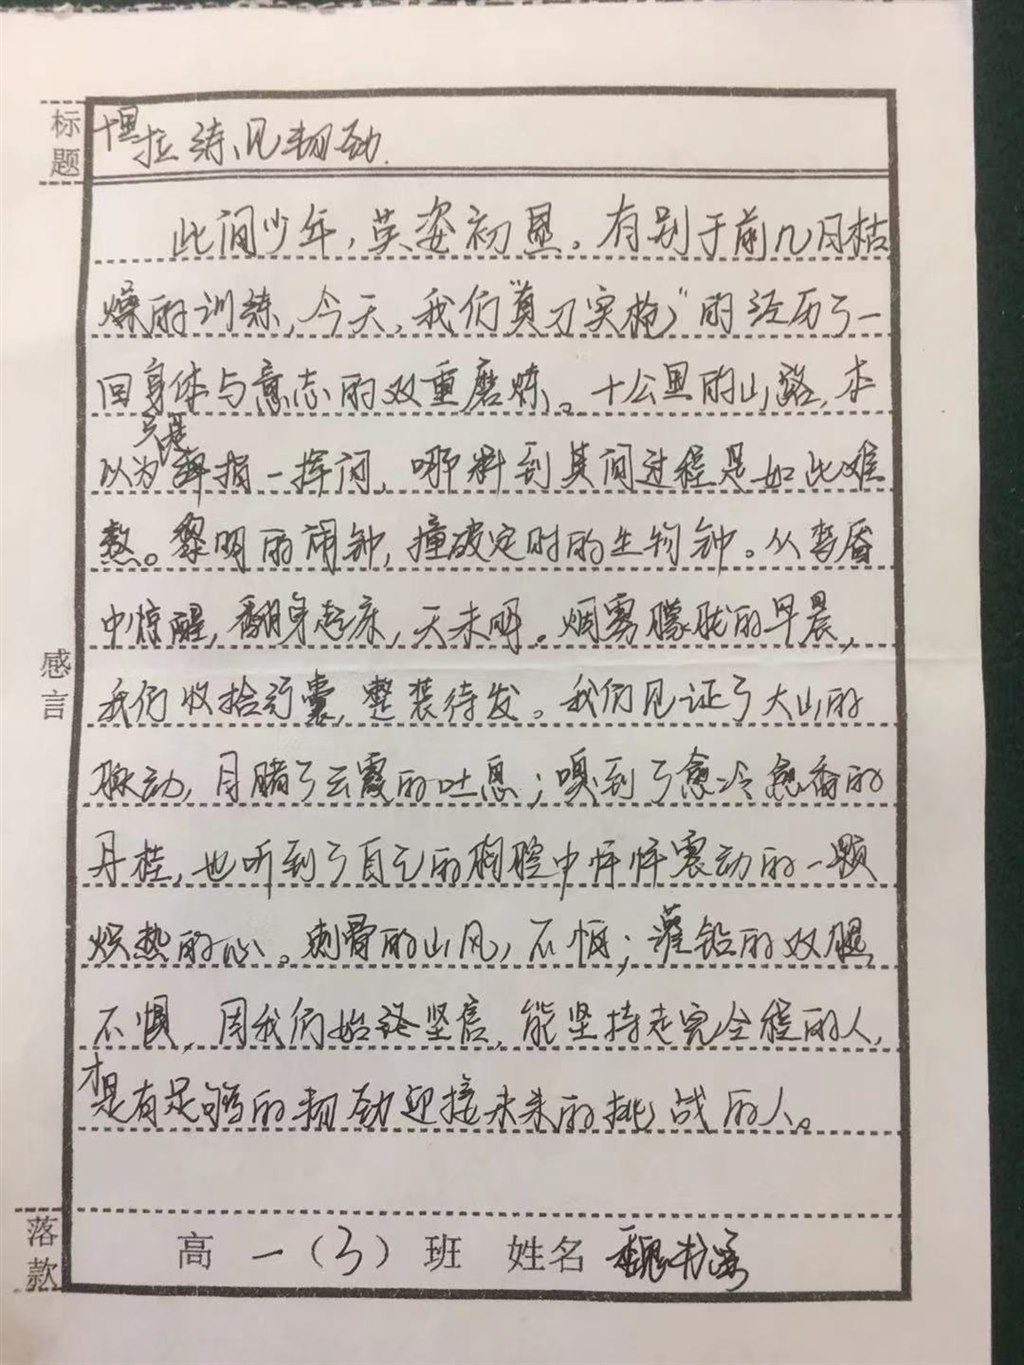 标题
十里拉练见韧劲.
此间少年，英姿初显。有别于前几月枯
燥的训练，今天，我们“真刀实枪”的经历了一
回身体与意志的双重磨炼。十公里的山路，本
以为只是弹指一挥间，哪料到其间过程是如此难
熬。黎明的闹钟，撞破定时的生物钟。从
中惊醒，翻身起床，天未明。烟雾朦胧的早晨，
我们收拾行囊，整装待发。我们见证了大山的
脉动，目睹了云霞的吐息；嗅到了愈冷愈香的
丹桂，也听到了自己的胸腔中怦怦震动的一颗
炽热的心。刺骨的山风，不惧；灌铅的双腿，
不惧，因我们始终坚信，能坚持走完全程的人，
才是有足够的韧劲迎接未来的挑战的人。
感言
落款
高一（3）班 姓名 魏书